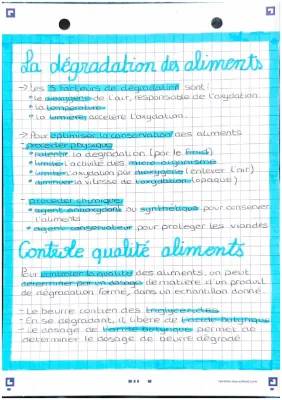 La dégradation des aliments
→ Les 3 facteurs de dégradation sont :
* le dioxygène de l'air, responsable de l'oxydation.
* la température
* la lumière, accélère l'oxydation.
→ Pour optimiser la conservation des aliments
- procédés physique
* ralentir la dégradation (par le froid)
* limite l'activité des micro organisme
* limiter l'oxydation par dioxygène (enlever l'air)
* diminuer la vitesse de l'oxydation (opaque)
- procédés chimique:
* agent antioxydant ou synthétique pour conserver
l'aliments
* agent conservateur pour protéger les viandes
Contrôle qualité aliments
Pour contrôler la qualité des aliments, on peut
déterminer par un dosage de matière d'un produit
de dégradation formé, dans un échantillon donné.
- Le beurre contien des triglycérides
- En se dégradant, il libère de l'acide butyrique
- Le dosage de l'acide butyrique permet de
déterminer le dosage de beurre dégradé